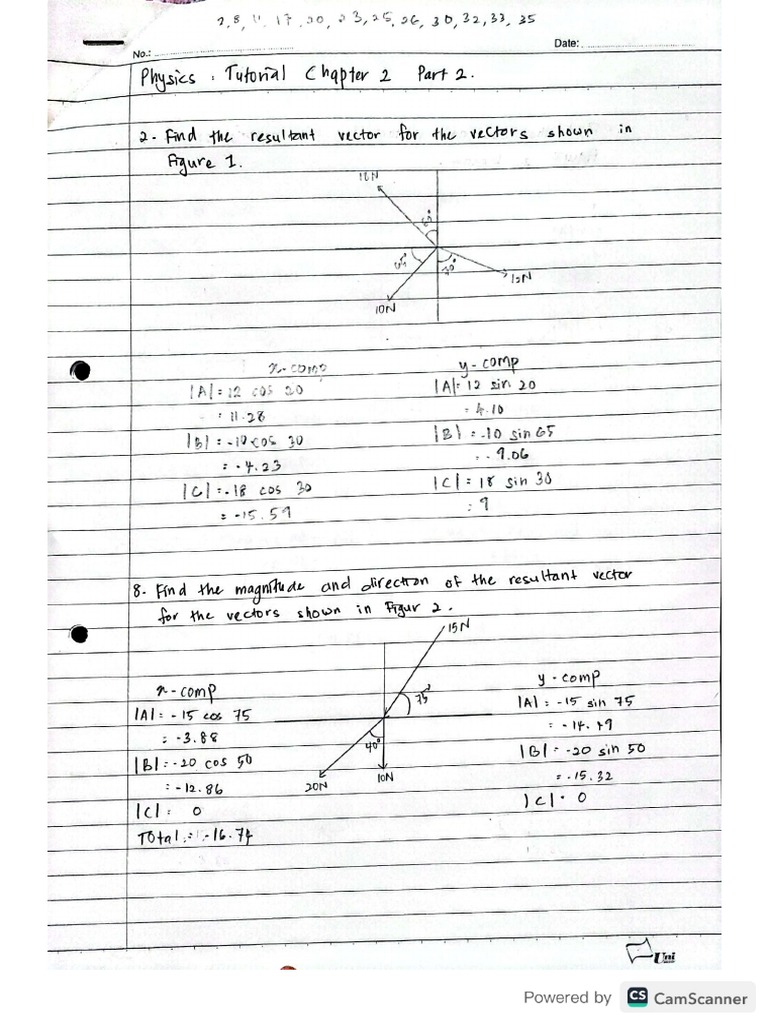 2, 8, 11, 17, 20, 23, 25, 26, 30, 32, 33, 35
No.:
Date:
Physics : Tutorial Chapter 2 Part 2.
2. Find the resultant vector for the vectors shown in
Figure 1.
18N
60°
65°
70°
10N
x-comp
y-comp
|A| = 12 cos 20
|A| = 12 sin 20
= 11.28
= 4.10
|B| = -10 cos 30
|B| = -10 sin 65
= -4.23
= -9.06
|C| = -18 cos 30
|C| = 18 sin 30
= -15.59
= 9
8. Find the magnitude and direction of the resultant vector
for the vectors shown in Figur 2.
15N
x-comp
y-comp
75°
|A| = -15 cos 75
|A| = -15 sin 75
= -3.88
= -14.49
40°
|B| = -20 cos 50
|B| = -20 sin 50
= -12.86
20N
10N
= -15.32
|C| = 0
|C| = 0
Total = -16.74
Uni
Powered by CS CamScanner